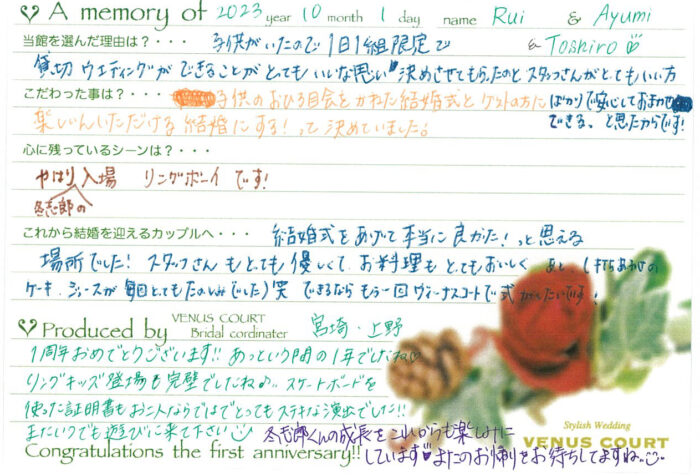 A memory of 2023 year 10 month 1 day name Rui & Ayumi
& Toshiro
当館を選んだ理由は？・・・ 子供がいたので1日1組限定で
貸切ウエディングができることがとってもいいな思い決めさせてもらったのと、スタッフさんがとてもいい方
ばかりで安心しておまかせ
できる、と思ったからです!
こだわった事は？・・・ 子供のおひろ目会をかねた結婚式とゲストの方に
楽しんいただける結婚にする!って決めていました。
心に残っているシーンは？・・・
やはり入場 リングボーイです!
冬志郎の
これから結婚を迎えるカップルへ・・・ 結婚式をあげて本当に良かった!っと思える
場所でした! スタッフさんもとても優しくて、お料理もとてもおいしく、あと、打ち合わせの
ケーキ、ジュースが毎回とてもたのしみでした)笑 できるならもう一回ヴィーナスコートで式がしたいです!
Produced by VENUS COURT Bridal cordinater 宮埼・上野
1周年おめでとうございます!! あっという間の1年でしたね
リングキッズ登場も完璧でしたね♪ スケートボードを
使った証明書もお二人ならではでとってもステキな演出でした!!
またいつでも遊びに来て下さい
冬志郎くんの成長をこれからも楽しみに
しています♥またのお帰りをお待ちしてますね。
Congratulations the first anniversary!!
Stylish Wedding
VENUS COURT